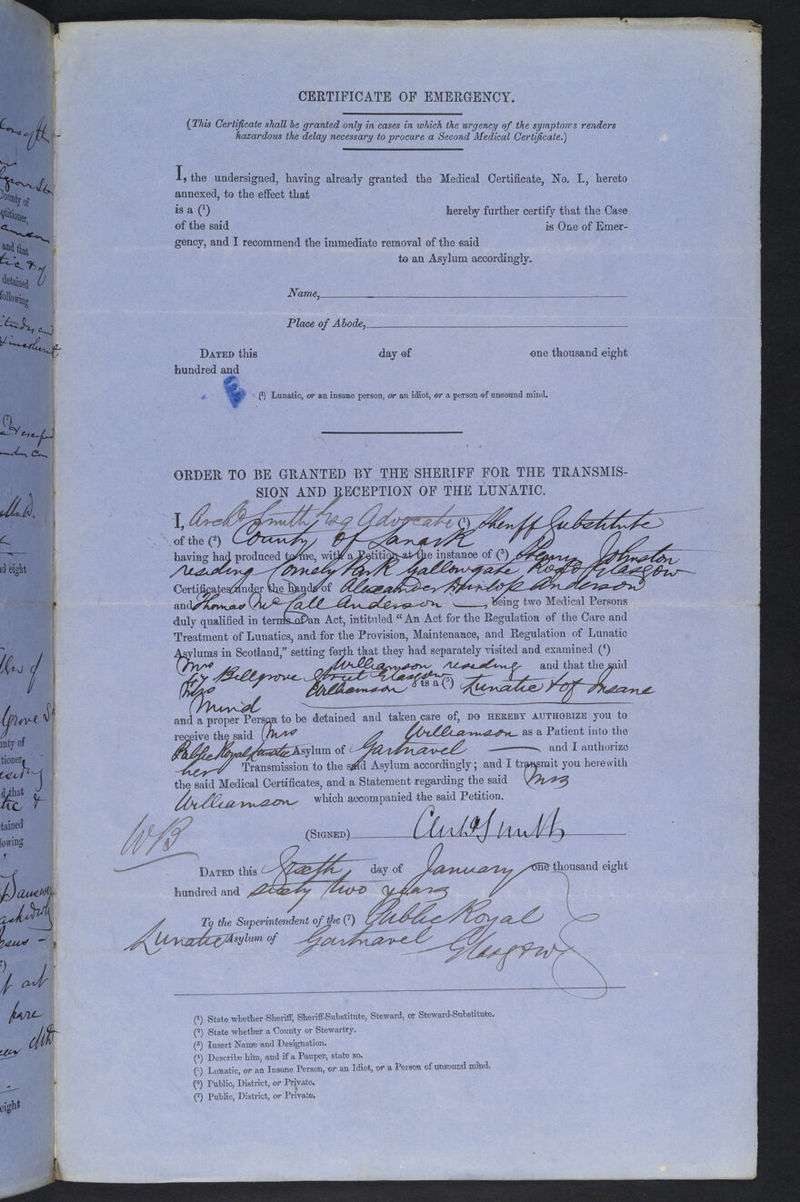 CERTIFICATE OF EMERGENCY.
(This Certificate shall be granted only in cases in which the urgency of the symptoms renders
hazardous the delay necessary to procure a Second Medical Certificate.)
I, the undersigned, having already granted the Medical Certificate, No. I., hereto
annexed, to the effect that
is a (¹) hereby further certify that the Case
of the said is One of Emer-
gency, and I recommend the immediate removal of the said
to an Asylum accordingly.
Name,
Place of Abode,
DATED this day of one thousand eight
hundred and
(¹) Lunatic, or an insane person, or an idiot, or a person of unsound mind.
ORDER TO BE GRANTED BY THE SHERIFF FOR THE TRANSMIS-
SION AND RECEPTION OF THE LUNATIC.
I, Archd Smith Esq Advocate (¹) Sheriff Substitute
of the (²) County Of Lanark
having had produced to me, with a Petition at the instance of (³) Henry Johnston
residing Comely Park Gallowgate Road Glasgow
Certificates under the hands of Alexander Dunlop Anderson
and Thomas McCall Anderson, being two Medical Persons
duly qualified in terms of an Act, intituled "An Act for the Regulation of the Care and
Treatment of Lunatics, and for the Provision, Maintenance, and Regulation of Lunatic
Asylums in Scotland," setting forth that they had separately visited and examined (⁴)
Mrs Williamson residing and that the said
Bellgrove Street Glasgow
Mrs Williamson is a (⁵) Lunatic & of Insane
Mind
and a proper Person to be detained and taken care of, DO HEREBY AUTHORIZE you to
receive the said Mrs Williamson as a Patient into the
Public Royal Lunatic Asylum of Gartnavel and I authorize
her Transmission to the said Asylum accordingly; and I transmit you herewith
the said Medical Certificates, and a Statement regarding the said Mrs
Williamson which accompanied the said Petition.
(SIGNED) Archd Smith
WB
DATED this Sixth day of January one thousand eight
hundred and sixty two years
To the Superintendent of the (⁷) Public Royal
Lunatic Asylum of Gartnavel Glasgow
(¹) State whether Sheriff, Sheriff-Substitute, Steward, or Steward-Substitute.
(²) State whether a County or Stewartry.
(³) Insert Name and Designation.
(⁴) Describe him, and if a Pauper, state so.
(⁵) Lunatic, or an Insane Person, or an Idiot, or a Person of unsound mind.
(⁶) Public, District, or Private.
(⁷) Public, District, or Private.